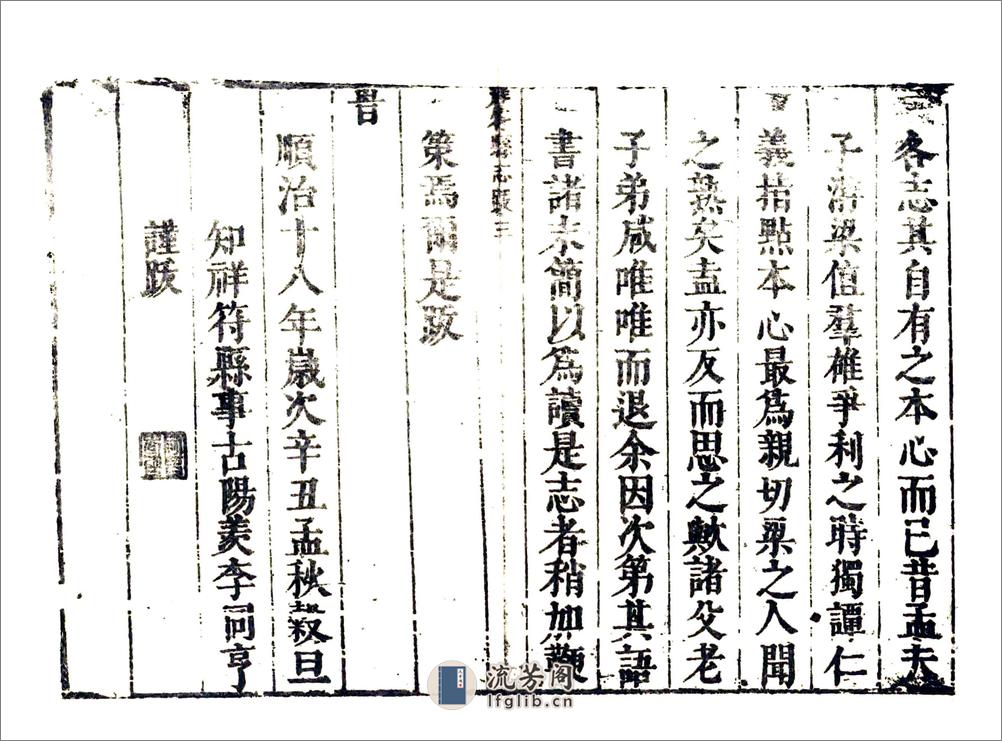 各志其自有之本心而已昔孟夫
子游梁值羣雄爭利之時獨譚仁
義指點本心最爲親切梁之人聞
之熟矣盍亦反而思之歟諸父老
子弟咸唯唯而退余因次第其語
書諸末簡以爲讀是志者稍加鞭
志跋 三
策焉爾是跋
旹
順治十八年歲次辛丑孟秋穀旦
知祥符縣事古陽羨李同亨
謹跋
流芳阁
lfglib.cn